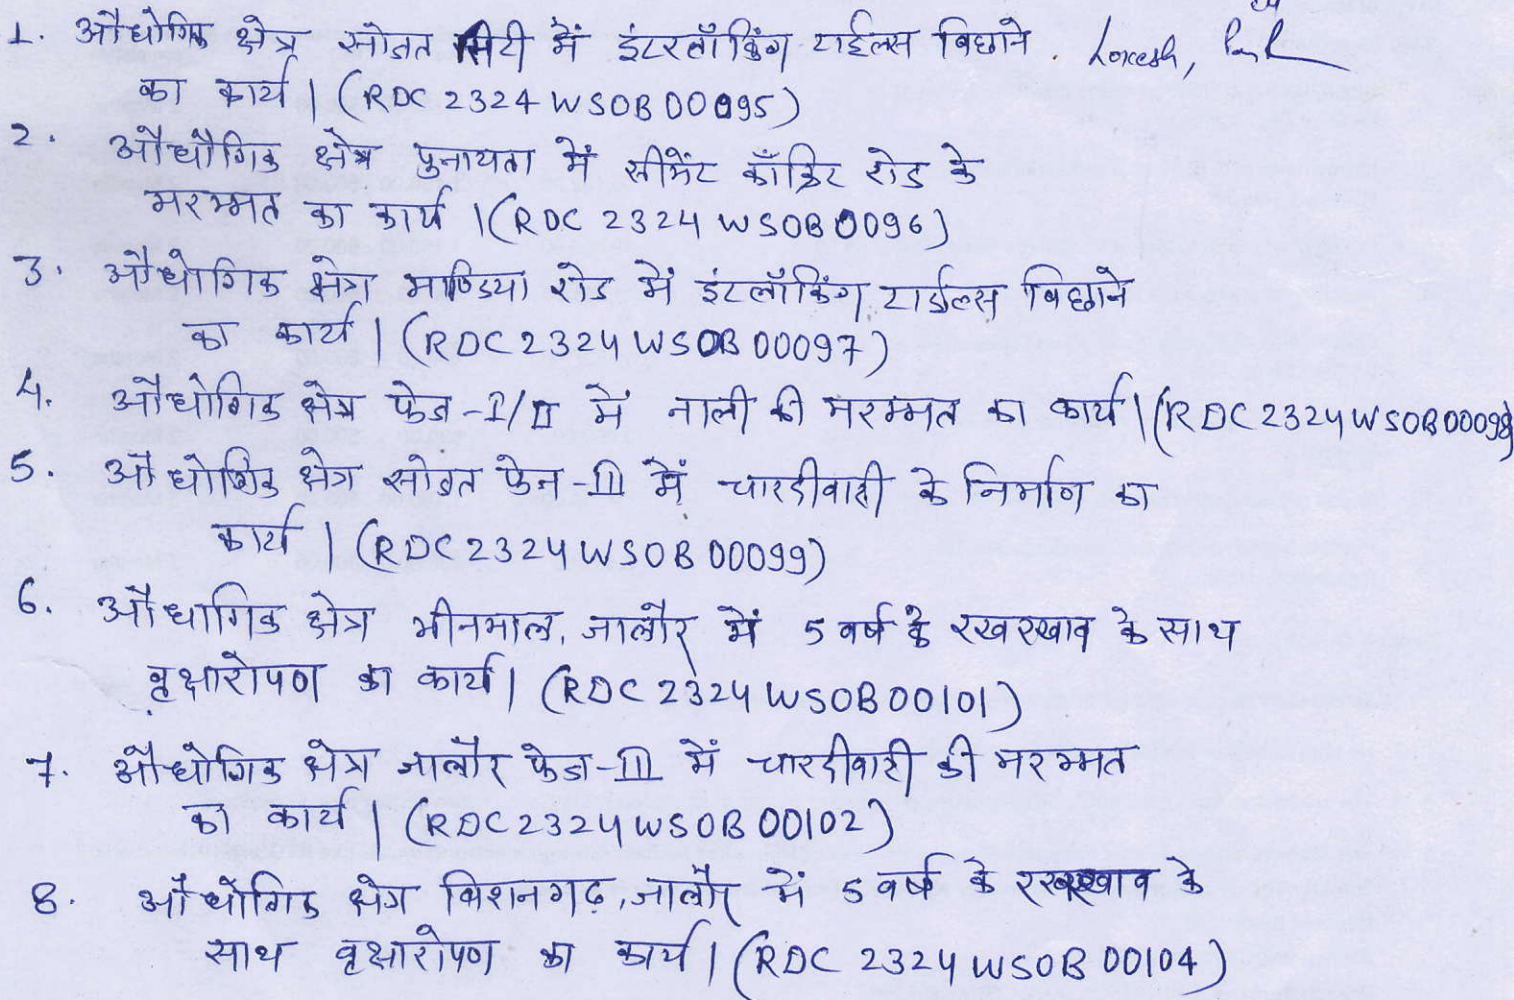 1. औधोगिक क्षेत्र सोजत सिटी में इंटरलॉकिंग टाईल्स बिछाने . Lokesh,
का कार्य | (RDC 2324 WSOB 00095)
2. औधौगिक क्षेत्र पुनायता में सीमेंट कॉंक्रिट रोड के
मरम्मत का कार्य | (RDC 2324 WSOB 0096)
3. औधोगिक क्षेत्र माण्डिया रोड में इंटलॉकिंग टाईल्स बिछाने
का कार्य | (RDC 2324 WSOB 00097)
4. औधोगिक क्षेत्र फेज-I/II में नाली की मरम्मत का कार्य | (RDC 2324 WSOB 00098)
5. औधोगिक क्षेत्र सोजत फेज-III में चारदीवारी के निर्माण का
कार्य | (RDC 2324 WSOB 00099)
6. औधोगिक क्षेत्र भीनमाल, जालौर में 5 वर्ष के रखरखाव के साथ
वृक्षारोपण का कार्य | (RDC 2324 WSOB 00101)
7. औधोगिक क्षेत्र जालौर फेज-III में चारदीवारी की मरम्मत
का कार्य | (RDC 2324 WSOB 00102)
8. औधोगिक क्षेत्र बिशनगढ़, जालौर में 5 वर्ष के रखरखाव के
साथ वृक्षारोपण का कार्य | (RDC 2324 WSOB 00104)